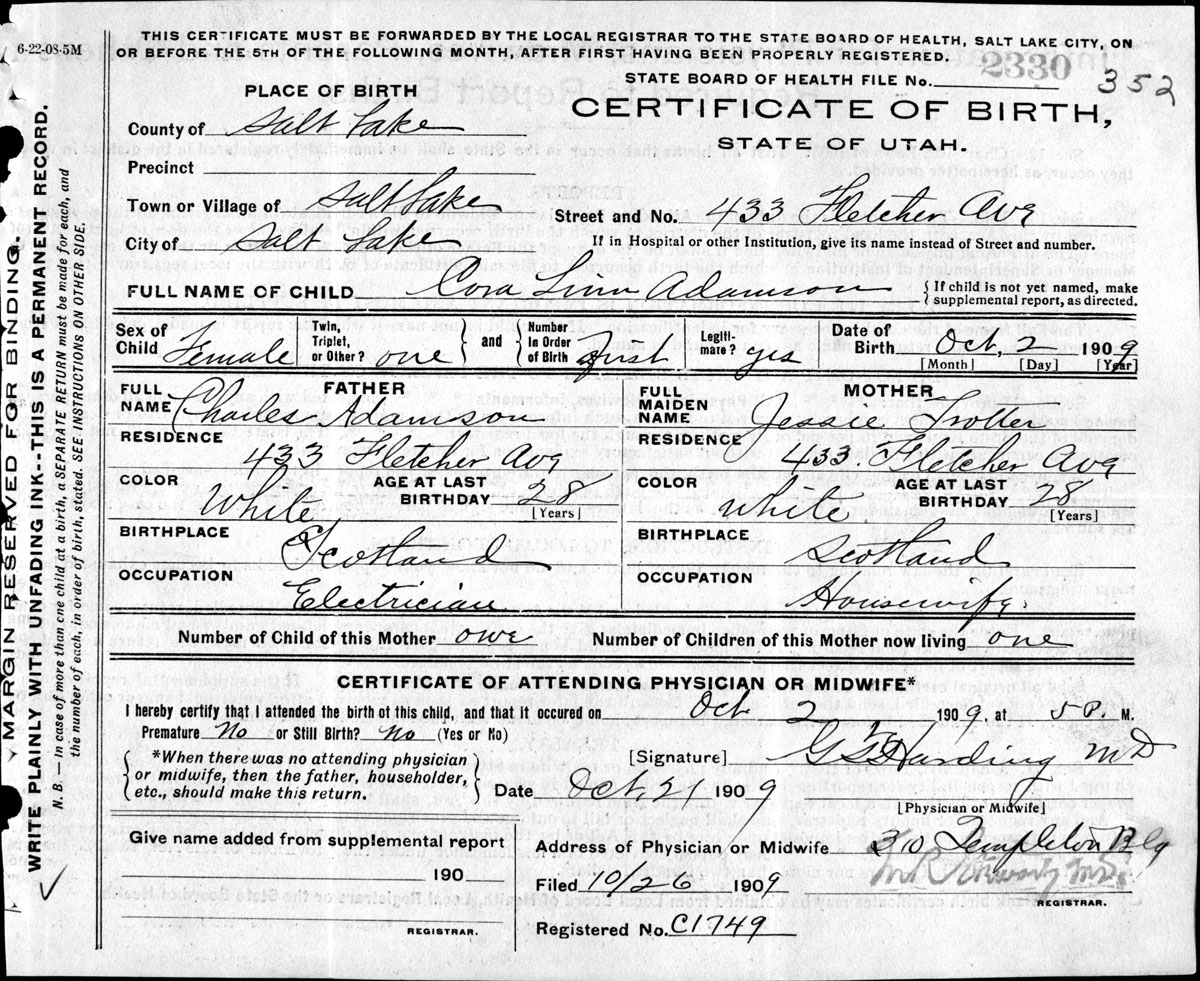 6-22-08-5M
THIS CERTIFICATE MUST BE FORWARDED BY THE LOCAL REGISTRAR TO THE STATE BOARD OF HEALTH, SALT LAKE CITY, ON
OR BEFORE THE 5TH OF THE FOLLOWING MONTH, AFTER FIRST HAVING BEEN PROPERLY REGISTERED.
STATE BOARD OF HEALTH FILE No. 2330 352
PLACE OF BIRTH
CERTIFICATE OF BIRTH,
STATE OF UTAH.
County of Salt Lake
Precinct
Town or Village of Salt Lake Street and No. 433 Fletcher Ave
City of Salt Lake If in Hospital or other Institution, give its name instead of Street and number.
FULL NAME OF CHILD Cora Linn Adamson { If child is not yet named, make
supplemental report, as directed.
Sex of Child Female Twin, Triplet, or Other? one } and { Number In Order of Birth first Legiti- mate? yes Date of Birth Oct, 2 1909
[Month] [Day] [Year]
FATHER
FULL NAME Charles Adamson
RESIDENCE
433 Fletcher Ave
COLOR White AGE AT LAST BIRTHDAY 28
[Years]
BIRTHPLACE
Scotland
OCCUPATION
Electrician
MOTHER
FULL MAIDEN NAME Jessie Trotter
RESIDENCE
433. Fletcher Ave
COLOR White. AGE AT LAST BIRTHDAY 28
[Years]
BIRTHPLACE
Scotland
OCCUPATION
Housewife.
Number of Child of this Mother one Number of Children of this Mother now living one
CERTIFICATE OF ATTENDING PHYSICIAN OR MIDWIFE*
I hereby certify that I attended the birth of this child, and that it occured on Oct 2 1909. at 5 P. M.
Premature No or Still Birth? No (Yes or No)
*When there was no attending physician
or midwife, then the father, householder,
etc., should make this return.
[Signature] Harding MD
Date Oct 21 1909
[Physician or Midwife]
Give name added from supplemental report
190
REGISTRAR.
Address of Physician or Midwife 310 Templeton Blg
Filed 10/26 1909
REGISTRAR.
Registered No. C1749
MARGIN RESERVED FOR BINDING.
WRITE PLAINLY WITH UNFADING INK--THIS IS A PERMANENT RECORD.
N. B.—In case of more than one child at a birth, a SEPARATE RETURN must be made for each, and
the number of each, in order of birth, stated. SEE INSTRUCTIONS ON OTHER SIDE.